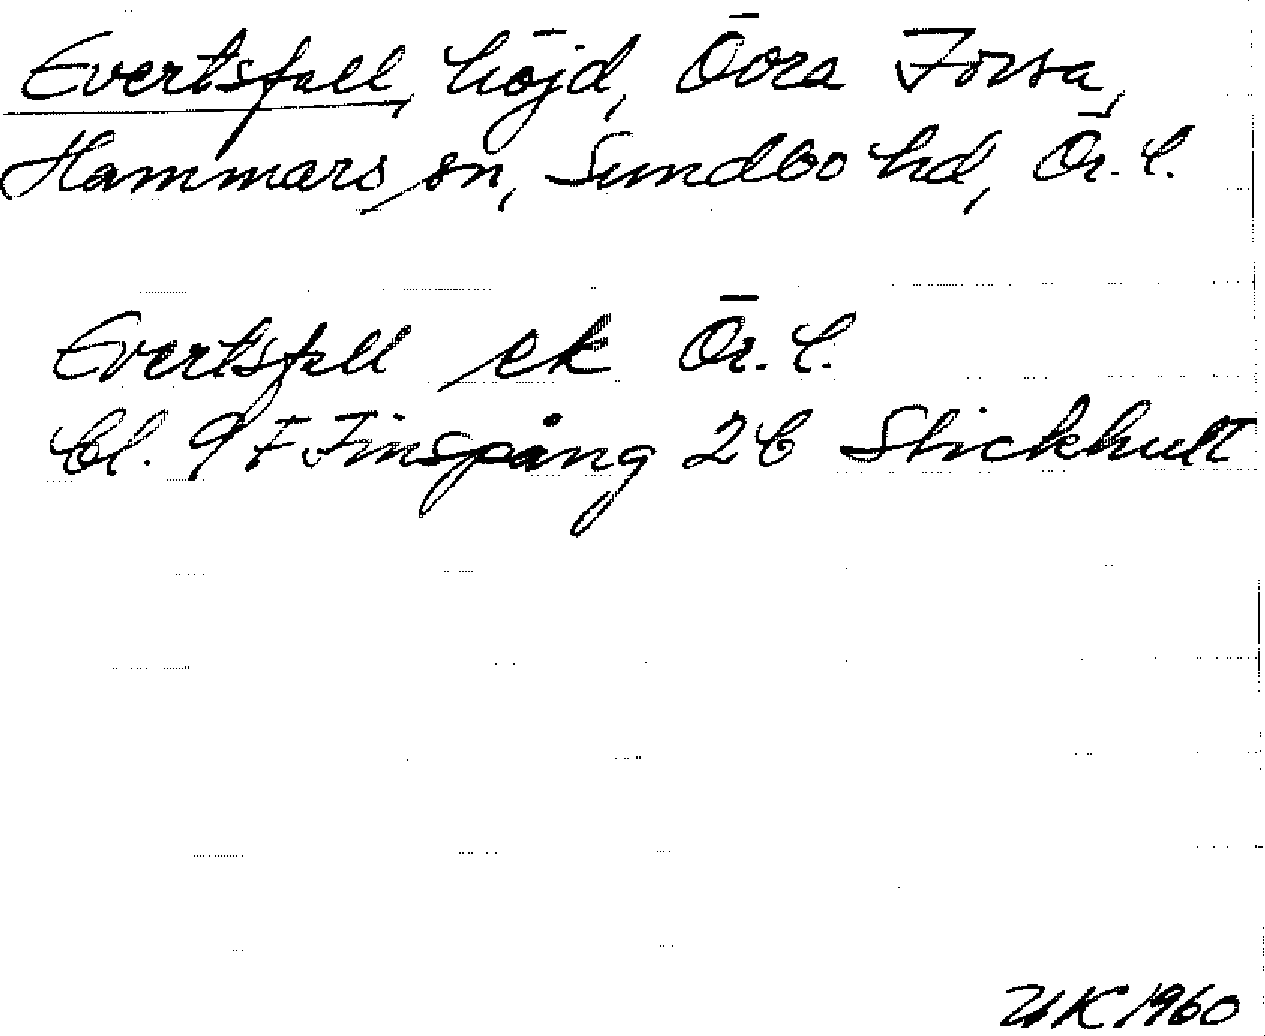 Evertsfall, höjd, Övra Forsa,
Hammars sn, Sundbo hd, Ör. l.
Evertsfall ek Ör. l.
bl. 9F Finspång 2b Stickhult
UK 1960